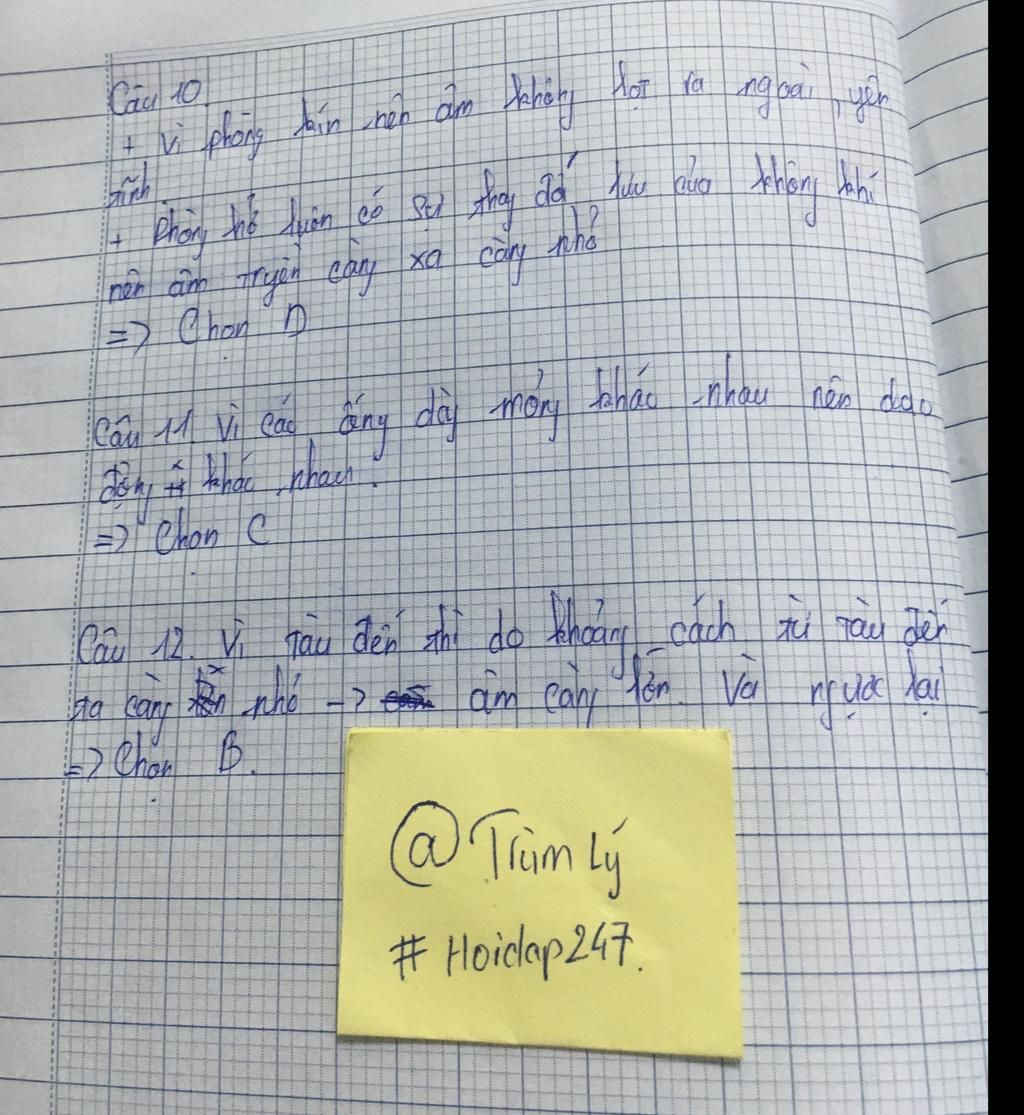 Câu 10.
+ Vì phòng kín nên âm không lọt ra ngoài, yên
tĩnh
+ Phòng hở luôn có sự thay đổ lưu của không khí
nên âm truyền càng xa càng nhỏ
=> Chọn D
Câu 11 Vì các ống dày mỏng khác nhau nên dao
động khác nhau.
=> Chọn C
Câu 12. Vì tàu đến thì do khoảng cách từ tàu đến
ta càng nhỏ -> âm càng lớn. Và ngược lại
=> Chọn B.
@Trùm Lý
# Hoidap247.